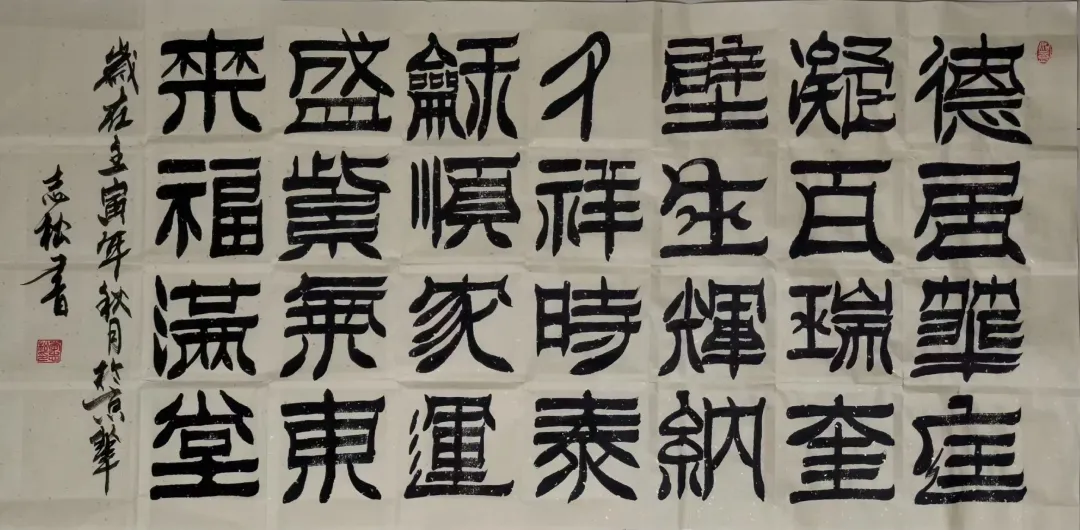 德居華庭
凝百瑞奎
壁生輝納
千祥時泰
龢順家運
盛紫炁東
來福滿堂
歲在壬寅年秋月於京華
志松書